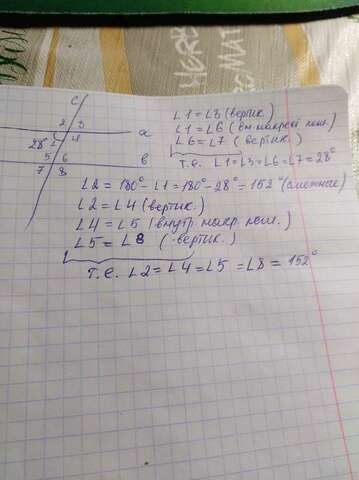 c
2 3
1 4 a
28°
5 6 b
7 8
∠1 = ∠3 (вертик.)
∠1 = ∠6 (вн. накрест леж.)
∠6 = ∠7 (вертик.)
т.е. ∠1 = ∠3 = ∠6 = ∠7 = 28°
∠2 = 180° - ∠1 = 180° - 28° = 152° (смежные)
∠2 = ∠4 (вертик.)
∠4 = ∠5 (внутр. накр. леж.)
∠5 = ∠8 (вертик.)
т.е. ∠2 = ∠4 = ∠5 = ∠8 = 152°